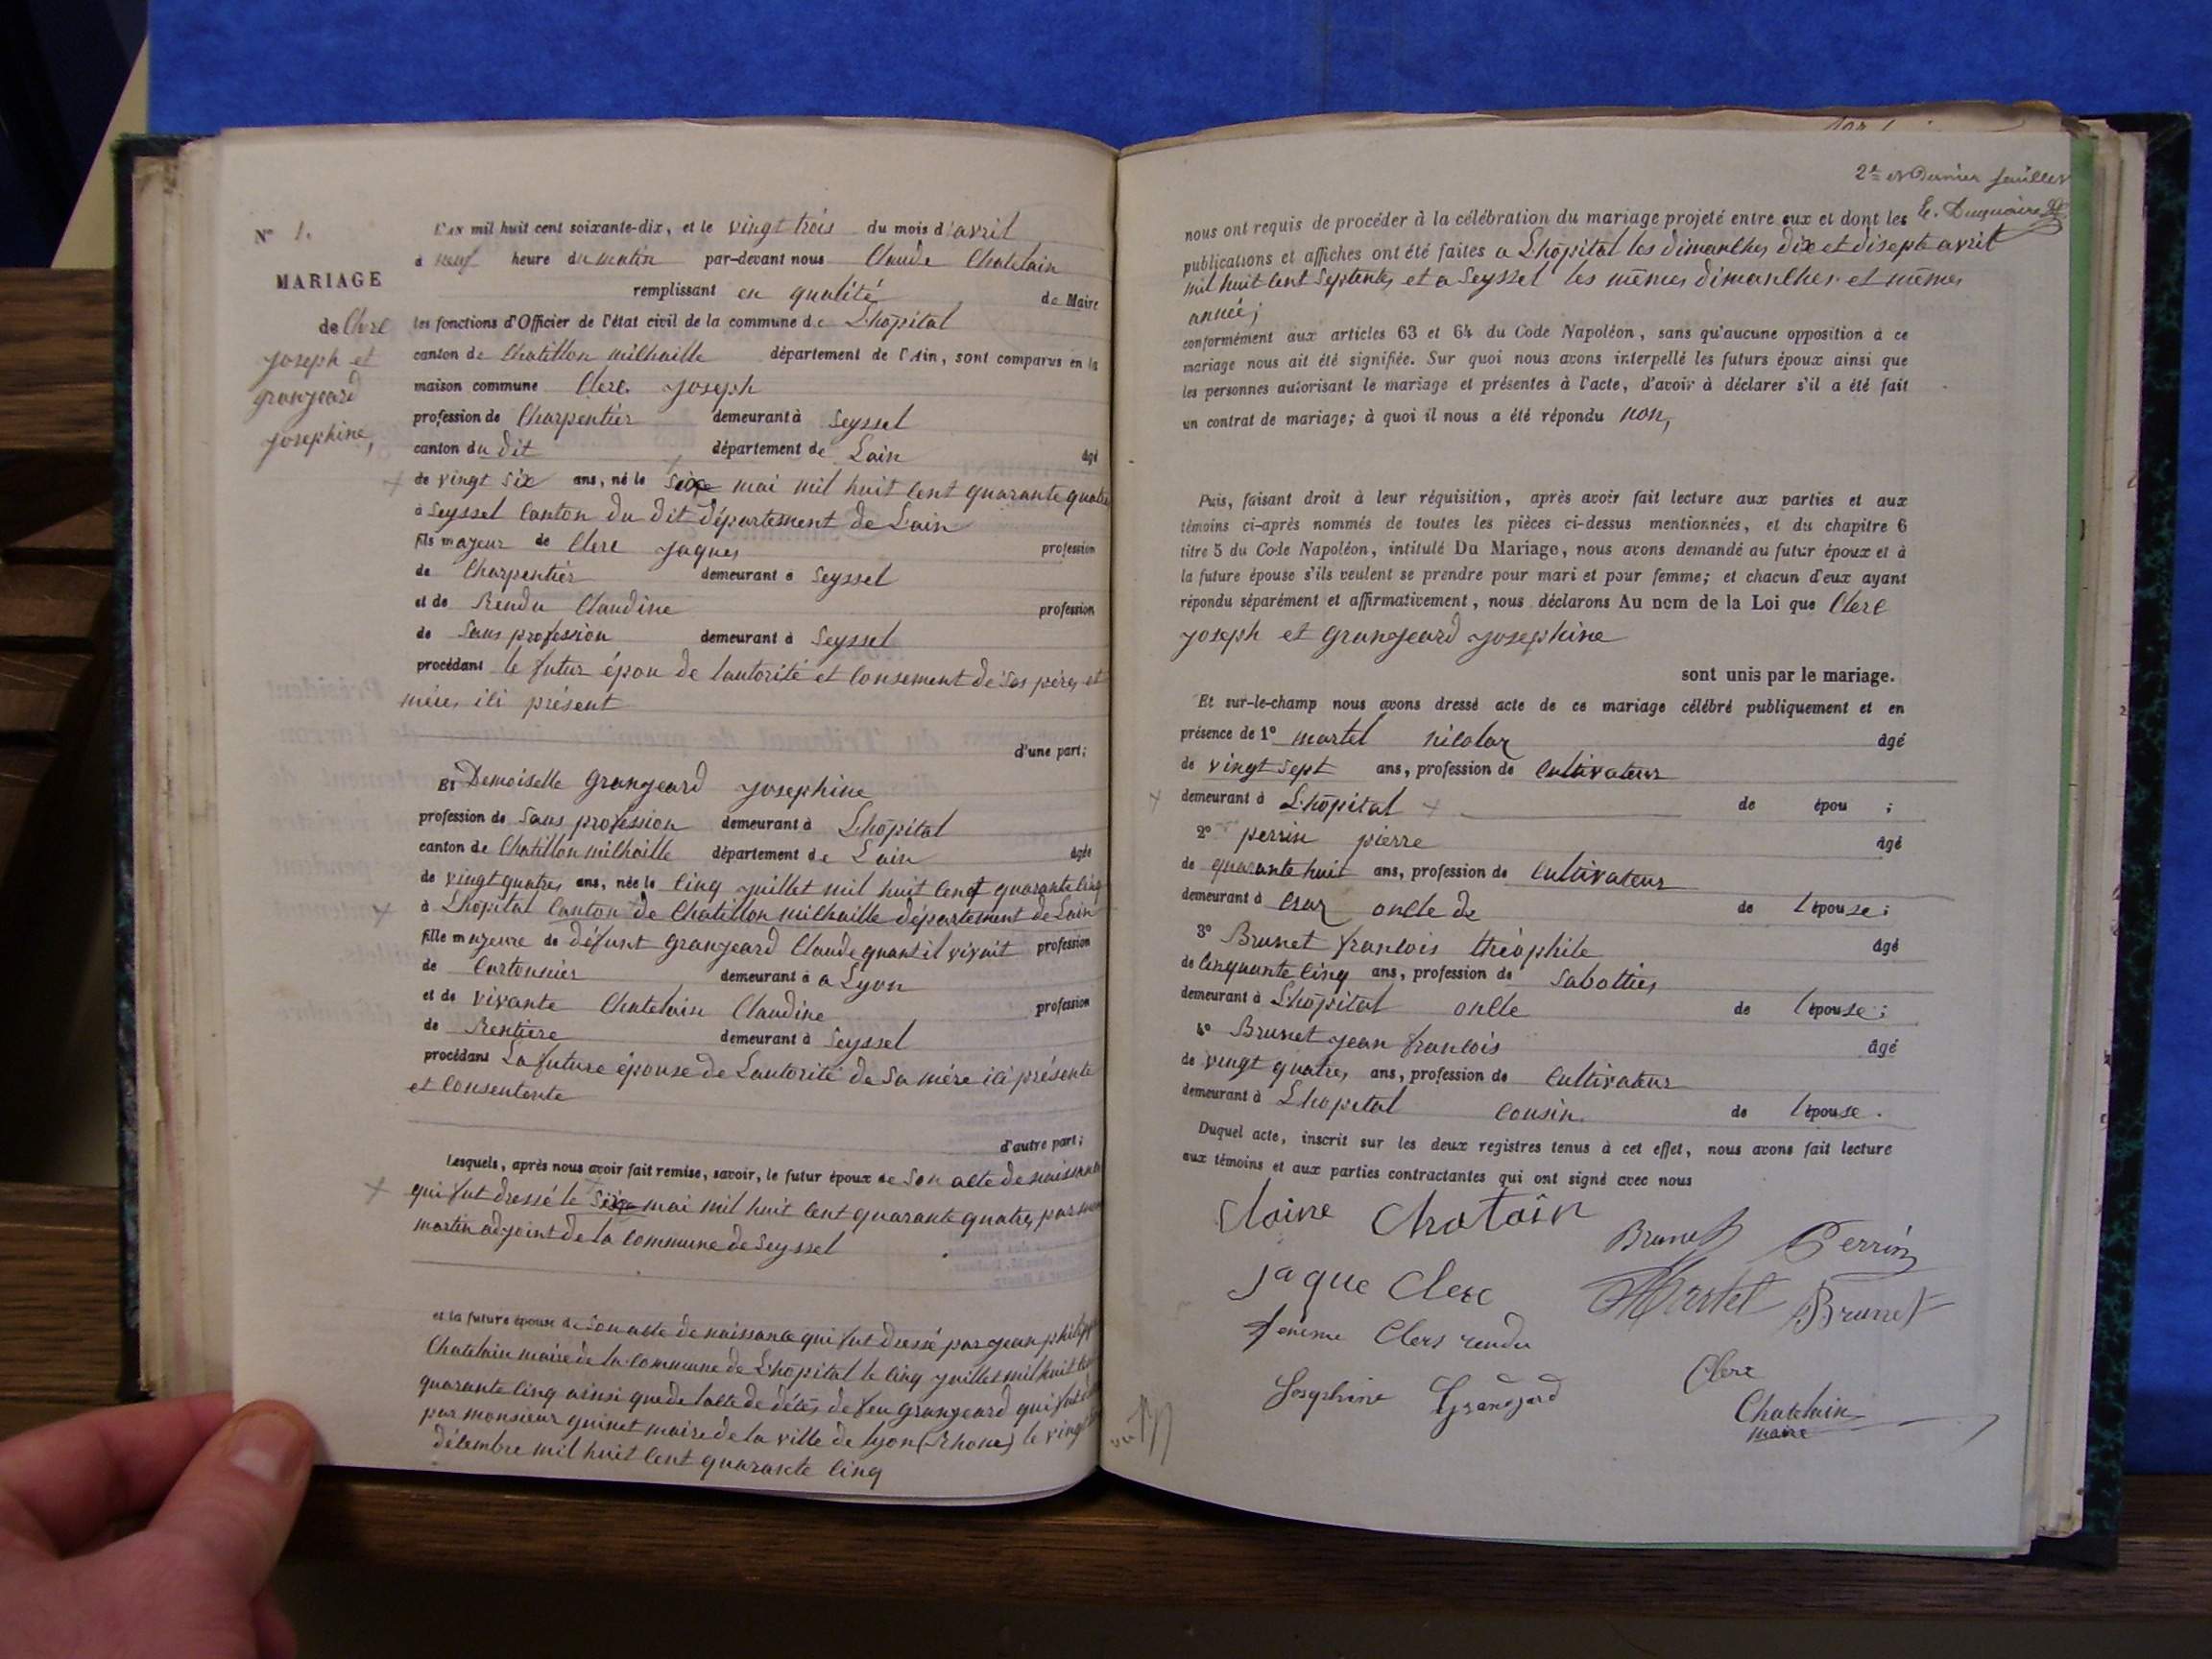 N° 1.
MARIAGE
de Clerc
Joseph et
Granjeard
Josephine,
L'an mil huit cent soixante-dix, et le vingt trois du mois d'avril
à neuf heure du matin par-devant nous Claude Chatelain
remplissant en qualité de Maire
les fonctions d'Officier de l'état civil de la commune de L'hôpital
canton de Chatillon milhaille département de l'Ain, sont comparus en la
maison commune Clerc Joseph
profession de Charpentier demeurant à Seyssel
canton du dit département de Lain âgé
de vingt six ans, né le mai mil huit cent quarante quatre
à Seyssel Canton du dit département de Lain
fils majeur de Clerc Jaques profession
de Charpentier demeurant à Seyssel
et de Rendu Claudine profession
de Sans profession demeurant à Seyssel
procédant le futur épou de lautorité et consement de Ses pères et
mères ici présent
d'une part;
Et Demoiselle Granjeard Josephine
profession de Sans profession demeurant à L'hôpital
canton de Chatillon milhaille département de Lain âgée
de vingt quatres ans, née le cinq juillet mil huit cent quarante cinq
à L'hôpital Canton de Chatillon milhaille département de Lain
fille majeure de défunt Granjeard Claude quant il vivait profession
de Cartonnier demeurant à a Lyon
et de vivante Chatelain Claudine profession
de Rentière demeurant à Seyssel
procédant La future épouse de Lautorité de Sa mère ici présente
et Consentente
d'autre part;
Lesquels, après nous avoir fait remise, savoir, le futur époux de Son acte de naissance
qui fut dressé le mai mil huit cent quarante quatres par
martin adjoint de la commune de Seyssel
et la future épouse de Son acte de naissance qui fut dressé par jean philippe
Chatelain maire de la commune de L'hôpital le cinq juillet mil huit cent
quarante cinq ainsi que de l'acte de décès de feu Granjeard qui fut
par monsieur guinet maire de la ville de Lyon (Rhone) le vingt
décembre mil huit cent quarante cinq
2e et Dernier feuillet
E. Duquaire
nous ont requis de procéder à la célébration du mariage projeté entre eux et dont les
publications et affiches ont été faites a L'hôpital les dimanches dix et disepte avril
mil huit cent Septentes et a Seyssel les mêmes dimanches et mêmes
année;
conformément aux articles 63 et 64 du Code Napoléon, sans qu'aucune opposition à ce
mariage nous ait été signifiée. Sur quoi nous avons interpellé les futurs époux ainsi que
les personnes autorisant le mariage et présentes à l'acte, d'avoir à déclarer s'il a été fait
un contrat de mariage; à quoi il nous a été répondu non,
Puis, faisant droit à leur réquisition, après avoir fait lecture aux parties et aux
témoins ci-après nommés de toutes les pièces ci-dessus mentionnées, et du chapitre 6
titre 5 du Code Napoléon, intitulé Du Mariage, nous avons demandé au futur époux et à
la future épouse s'ils veulent se prendre pour mari et pour femme; et chacun d'eux ayant
répondu séparément et affirmativement, nous déclarons Au nom de la Loi que Clerc
Joseph et Granjeard Josephine
sont unis par le mariage.
Et sur-le-champ nous avons dressé acte de ce mariage célébré publiquement et en
présence de 1° martel nicolas âgé
de vingt sept ans, profession de Cultivateur
demeurant à L'hôpital de épou ;
2° perrin pierre âgé
de quarante huit ans, profession de Cultivateur
demeurant à Craz oncle de de l'épouse;
3° Brunet francois théophile âgé
de cinquante cinq ans, profession de Sabottier
demeurant à L'hôpital oncle de l'épouse;
4° Brunet jean francois âgé
de vingt quatres ans, profession de Cultivateur
demeurant à L'hopital Cousin de l'épouse.
Duquel acte, inscrit sur les deux registres tenus à cet effet, nous avons fait lecture
aux témoins et aux parties contractantes qui ont signé avec nous
Brunet Perrin
jaque Clerc Martel Brunet
Clers rendu
Josephine Granjard Clerc
Chatelain
maire